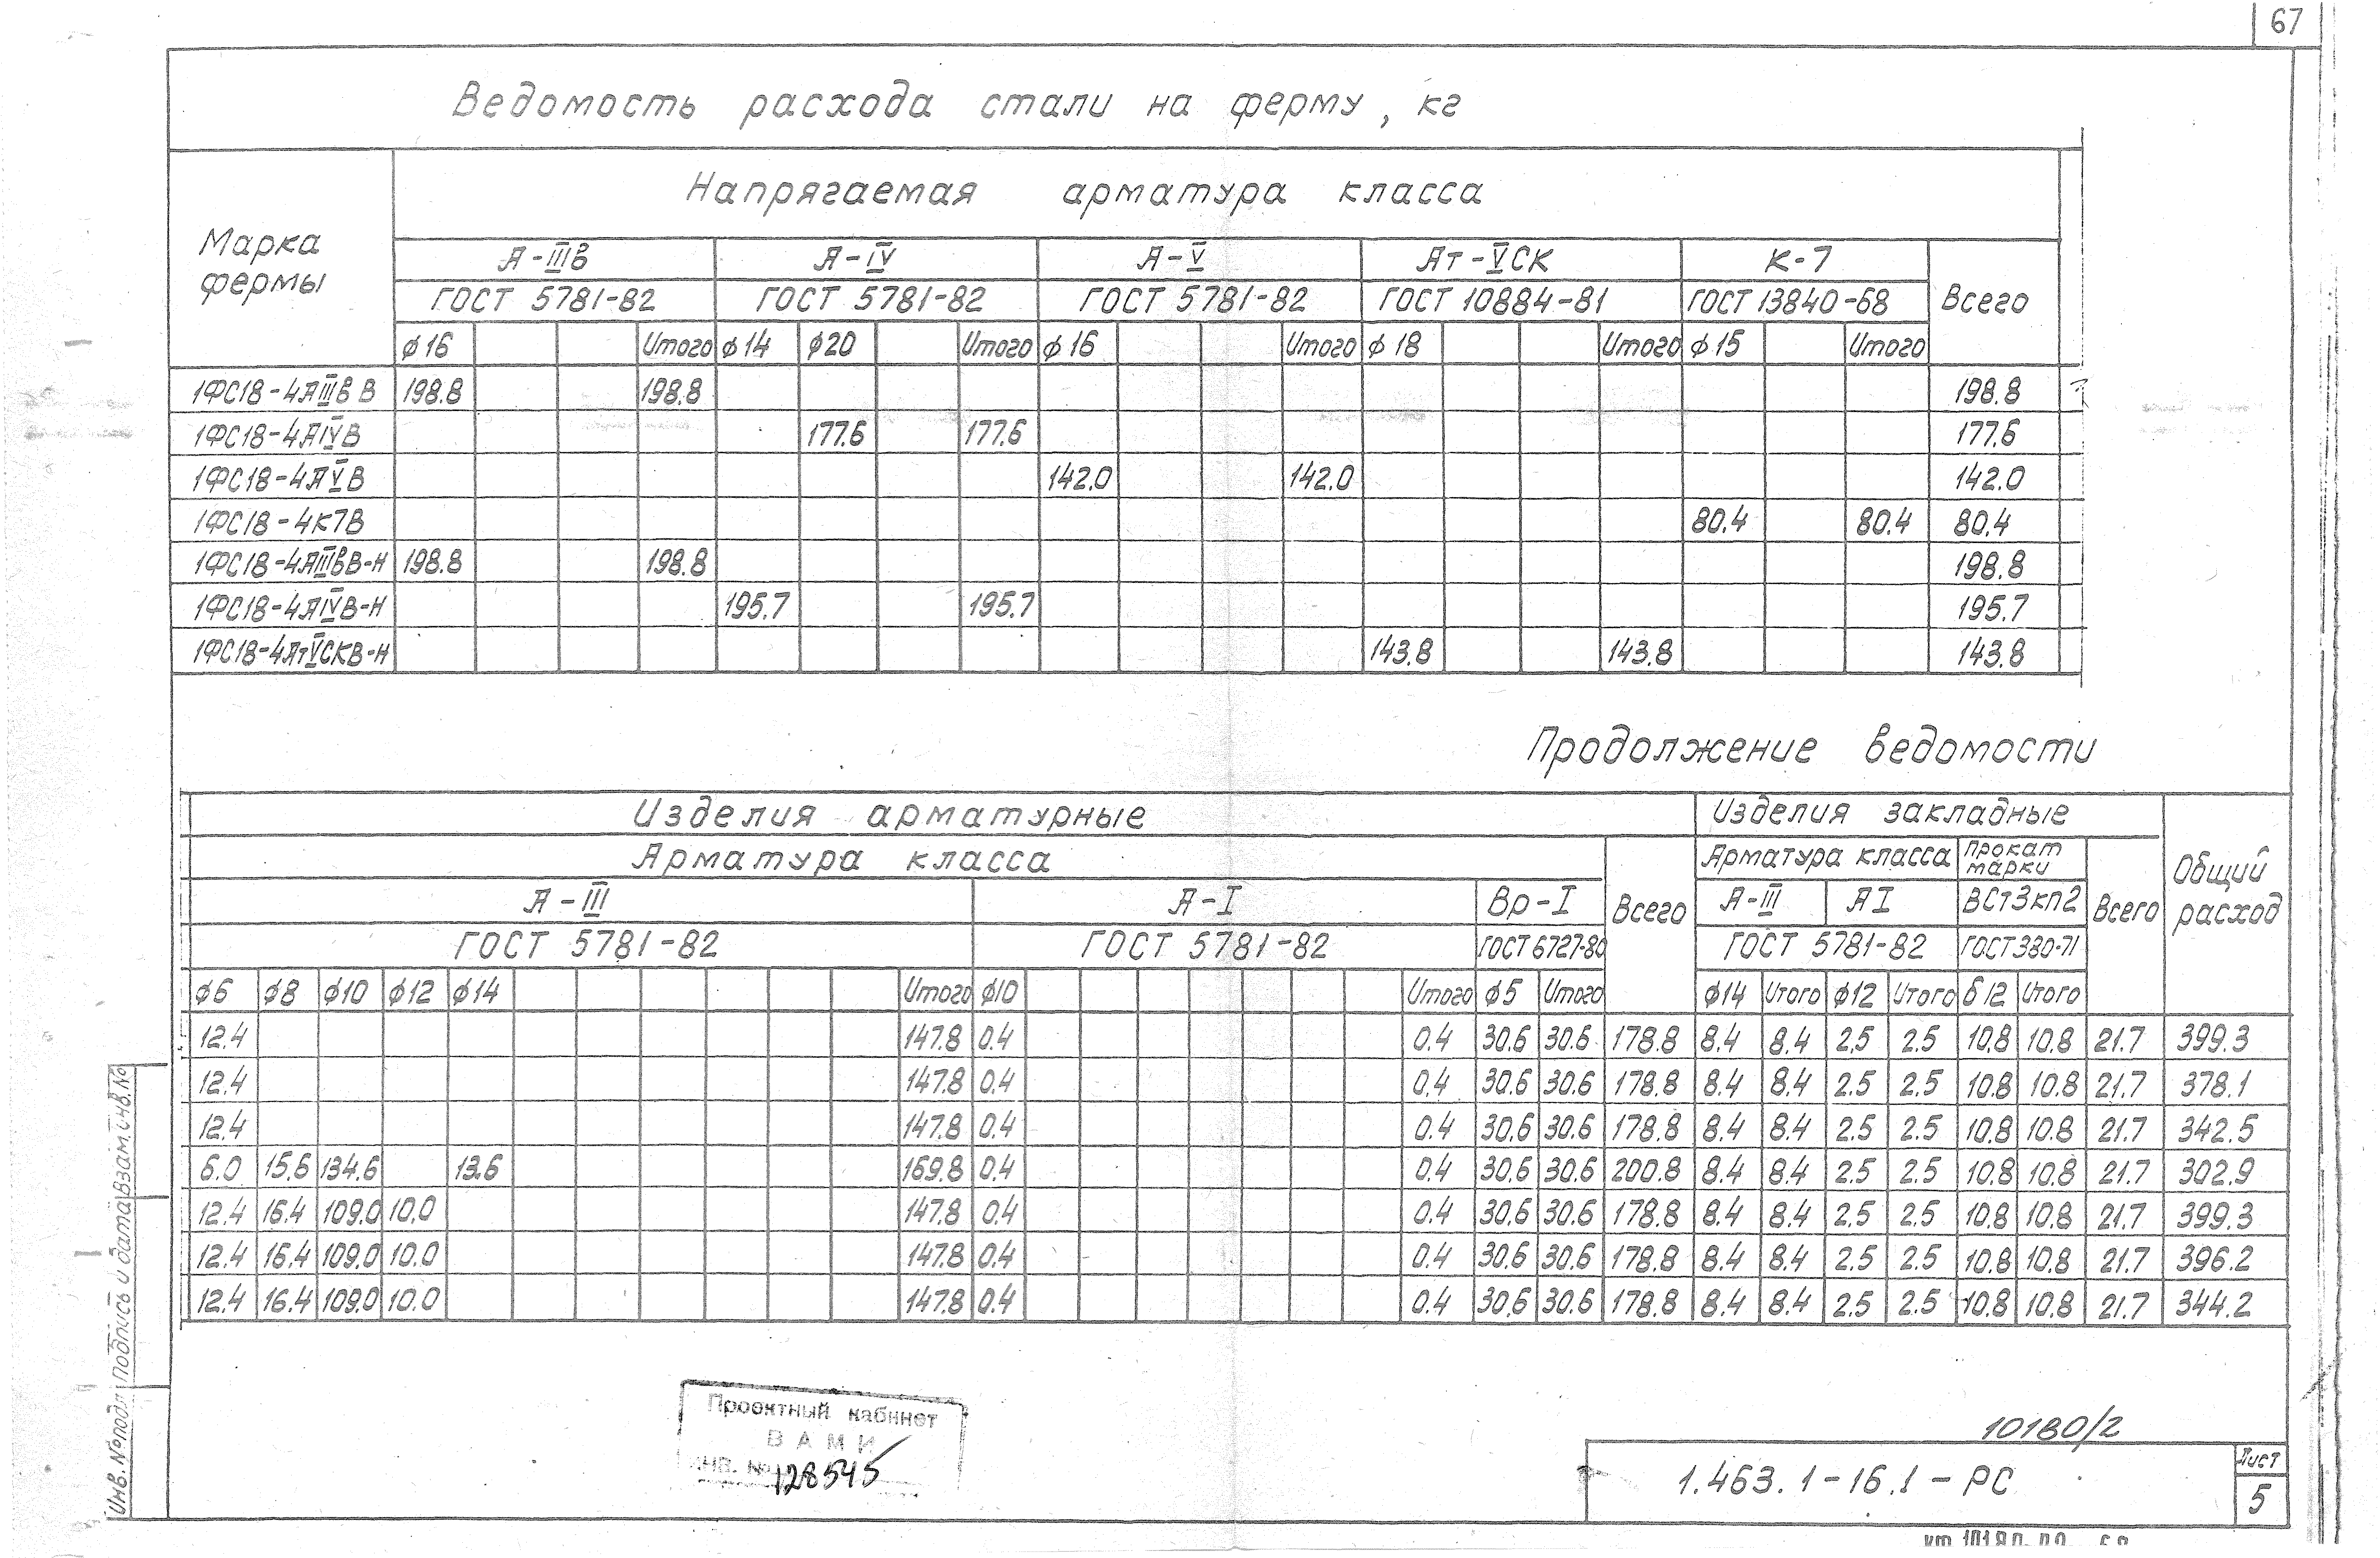 67
Ведомость расхода стали на ферму, кг
Марка фермы
Напрягаемая арматура класса
А-IIIв А-IV А-V Ат-VСК К-7 Всего
ГОСТ 5781-82 ГОСТ 5781-82 ГОСТ 5781-82 ГОСТ 10884-81 ГОСТ 13840-68
ф16 Итого ф14 ф20 Итого ф16 Итого ф18 Итого ф15 Итого
1ФС18-4АIIIв В 198.8 198.8 198.8
1ФС18-4АIVВ 177.6 177.6 177.6
1ФС18-4АVВ 142.0 142.0 142.0
1ФС18-4К7В 80.4 80.4 80.4
1ФС18-4АIIIвВ-Н 198.8 198.8 198.8
1ФС18-4АIVВ-Н 195.7 195.7 195.7
1ФС18-4АтVСКВ-Н 143.8 143.8 143.8
Продолжение ведомости
Изделия арматурные Изделия закладные Общий расход
Арматура класса Всего Арматура класса Прокат марки Всего
А-III А-I Вр-I А-III АI ВСт3кп2
ГОСТ 5781-82 ГОСТ 5781-82 ГОСТ 6727-80 ГОСТ 5781-82 ГОСТ 380-71
ф6 ф8 ф10 ф12 ф14 Итого ф10 Итого ф5 Итого ф14 Итого ф12 Итого б12 Итого
12.4 147.8 0.4 0.4 30.6 30.6 178.8 8.4 8.4 2,5 2.5 10,8 10.8 21.7 399.3
12.4 147.8 0.4 0.4 30.6 30.6 178.8 8.4 8.4 2.5 2.5 10.8 10.8 21.7 378.1
12.4 147.8 0.4 0.4 30.6 30.6 178.8 8.4 8.4 2.5 2.5 10.8 10.8 21.7 342.5
6.0 15.6 134.6 13.6 169.8 0.4 0.4 30.6 30.6 200.8 8.4 8.4 2.5 2.5 10.8 10.8 21.7 302.9
12.4 16.4 109.0 10.0 147.8 0.4 0.4 30.6 30.6 178.8 8.4 8.4 2.5 2.5 10.8 10.8 21.7 399.3
12.4 16.4 109.0 10.0 147.8 0.4 0.4 30.6 30.6 178.8 8.4 8.4 2.5 2.5 10.8 10.8 21.7 396.2
12.4 16.4 109.0 10.0 147.8 0.4 0.4 30.6 30.6 178.8 8.4 8.4 2.5 2.5 10.8 10.8 21.7 344.2
Инв. № подл. Подпись и дата Взам. инв. №
Проектный кабинет
ВАМИ
ИНВ. № 128545
10180/2
1.463.1-16.1-РС
Лист
5